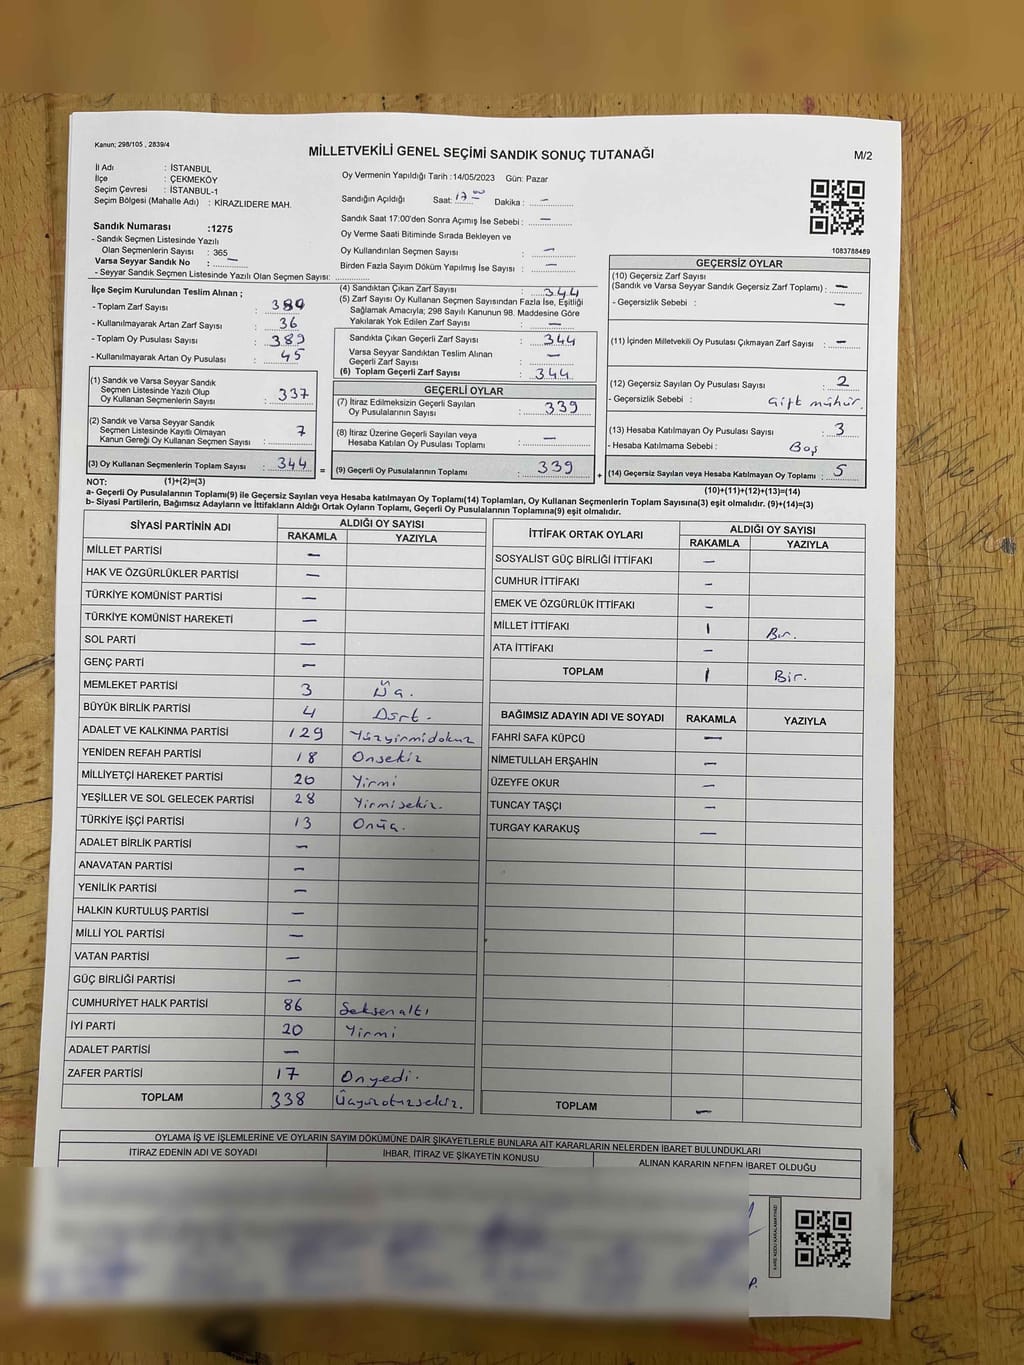 Kanun; 298/105 , 2839/4
MİLLETVEKİLİ GENEL SEÇİMİ SANDIK SONUÇ TUTANAĞI
M/2
İl Adı : İSTANBUL
İlçe : ÇEKMEKÖY
Seçim Çevresi : İSTANBUL-1
Seçim Bölgesi (Mahalle Adı) : KİRAZLIDERE MAH.
Sandık Numarası :1275
- Sandık Seçmen Listesinde Yazılı
Olan Seçmenlerin Sayısı : 365
Varsa Seyyar Sandık No : —
- Seyyar Sandık Seçmen Listesinde Yazılı Olan Seçmen Sayısı:
Oy Vermenin Yapıldığı Tarih :14/05/2023 Gün: Pazar
Sandığın Açıldığı Saat: 17.00 Dakika : —
Sandık Saat 17:00'den Sonra Açımış İse Sebebi : —
Oy Verme Saati Bitiminde Sırada Bekleyen ve
Oy Kullandırılan Seçmen Sayısı : —
Birden Fazla Sayım Döküm Yapılmış İse Sayısı : —
1083788489
İlçe Seçim Kurulundan Teslim Alınan ;
- Toplam Zarf Sayısı : 380
- Kullanılmayarak Artan Zarf Sayısı : 36
- Toplam Oy Pusulası Sayısı : 389
- Kullanılmayarak Artan Oy Pusulası : 45
(1) Sandık ve Varsa Seyyar Sandık
Seçmen Listesinde Yazılı Olup
Oy Kullanan Seçmenlerin Sayısı : 337
(2) Sandık ve Varsa Seyyar Sandık
Seçmen Listesinde Kayıtlı Olmayan
Kanun Gereği Oy Kullanan Seçmen Sayısı : 7
(3) Oy Kullanan Seçmenlerin Toplam Sayısı : 344 =
(4) Sandıktan Çıkan Zarf Sayısı : 344
(5) Zarf Sayısı Oy Kullanan Seçmen Sayısından Fazla İse, Eşitliği
Sağlamak Amacıyla; 298 Sayılı Kanunun 98. Maddesine Göre
Yakılarak Yok Edilen Zarf Sayısı : —
Sandıkta Çıkan Geçerli Zarf Sayısı : 344
Varsa Seyyar Sandıktan Teslim Alınan
Geçerli Zarf Sayısı : —
(6) Toplam Geçerli Zarf Sayısı : 344
GEÇERLİ OYLAR
(7) İtiraz Edilmeksizin Geçerli Sayılan
Oy Pusulalarının Sayısı : 339
(8) İtiraz Üzerine Geçerli Sayılan veya
Hesaba Katılan Oy Pusulası Toplamı : —
(9) Geçerli Oy Pusulalarının Toplamı : 339 +
GEÇERSİZ OYLAR
(10) Geçersiz Zarf Sayısı
(Sandık ve Varsa Seyyar Sandık Geçersiz Zarf Toplamı) : —
- Geçersizlik Sebebi : —
(11) İçinden Milletvekili Oy Pusulası Çıkmayan Zarf Sayısı : —
(12) Geçersiz Sayılan Oy Pusulası Sayısı : 2
- Geçersizlik Sebebi : Çift mühür.
(13) Hesaba Katılmayan Oy Pusulası Sayısı : 3
- Hesaba Katılmama Sebebi : Boş
(14) Geçersiz Sayılan veya Hesaba Katılmayan Oy Pusulası Toplamı : 5
NOT: (1)+(2)=(3)
(10)+(11)+(12)+(13)=(14)
a- Geçerli Oy Pusulalarının Toplamı(9) ile Geçersiz Sayılan veya Hesaba katılmayan Oy Toplamı(14) Toplamları, Oy Kullanan Seçmenlerin Toplam Sayısına(3) eşit olmalıdır. (9)+(14)=(3)
b- Siyasi Partilerin, Bağımsız Adayların ve İttifakların Aldığı Ortak Oyların Toplamı, Geçerli Oy Pusulalarının Toplamına(9) eşit olmalıdır.
SİYASİ PARTİNİN ADI ALDIĞI OY SAYISI
RAKAMLA YAZIYLA
MİLLET PARTİSİ —
HAK VE ÖZGÜRLÜKLER PARTİSİ —
TÜRKİYE KOMÜNİST PARTİSİ —
TÜRKİYE KOMÜNİST HAREKETİ —
SOL PARTİ —
GENÇ PARTİ —
MEMLEKET PARTİSİ 3 Üç.
BÜYÜK BİRLİK PARTİSİ 4 Dört.
ADALET VE KALKINMA PARTİSİ 129 Yüzyirmidokuz
YENİDEN REFAH PARTİSİ 18 Onsekiz
MİLLİYETÇİ HAREKET PARTİSİ 20 Yirmi
YEŞİLLER VE SOL GELECEK PARTİSİ 28 Yirmisekiz.
TÜRKİYE İŞÇİ PARTİSİ 13 Onüç.
ADALET BİRLİK PARTİSİ —
ANAVATAN PARTİSİ —
YENİLİK PARTİSİ —
HALKIN KURTULUŞ PARTİSİ —
MİLLİ YOL PARTİSİ —
VATAN PARTİSİ —
GÜÇ BİRLİĞİ PARTİSİ —
CUMHURİYET HALK PARTİSİ 86 Seksenaltı
İYİ PARTİ 20 Yirmi
ADALET PARTİSİ —
ZAFER PARTİSİ 17 Onyedi.
TOPLAM 338 Üçyüzotuzsekiz.
İTTİFAK ORTAK OYLARI ALDIĞI OY SAYISI
RAKAMLA YAZIYLA
SOSYALİST GÜÇ BİRLİĞİ İTTİFAKI —
CUMHUR İTTİFAKI —
EMEK VE ÖZGÜRLÜK İTTİFAKI —
MİLLET İTTİFAKI 1 Bir.
ATA İTTİFAKI —
TOPLAM 1 Bir.
BAĞIMSIZ ADAYIN ADI VE SOYADI RAKAMLA YAZIYLA
FAHRİ SAFA KÜPCÜ —
NİMETULLAH ERŞAHİN —
ÜZEYFE OKUR —
TUNCAY TAŞÇI —
TURGAY KARAKUŞ —
TOPLAM —
OYLAMA İŞ VE İŞLEMLERİNE VE OYLARIN SAYIM DÖKÜMÜNE DAİR ŞİKAYETLERLE BUNLARA AİT KARARLARIN NELERDEN İBARET BULUNDUKLARI
İTİRAZ EDENİN ADI VE SOYADI İHBAR, İTİRAZ VE ŞİKAYETİN KONUSU ALINAN KARARIN NEDEN İBARET OLDUĞU